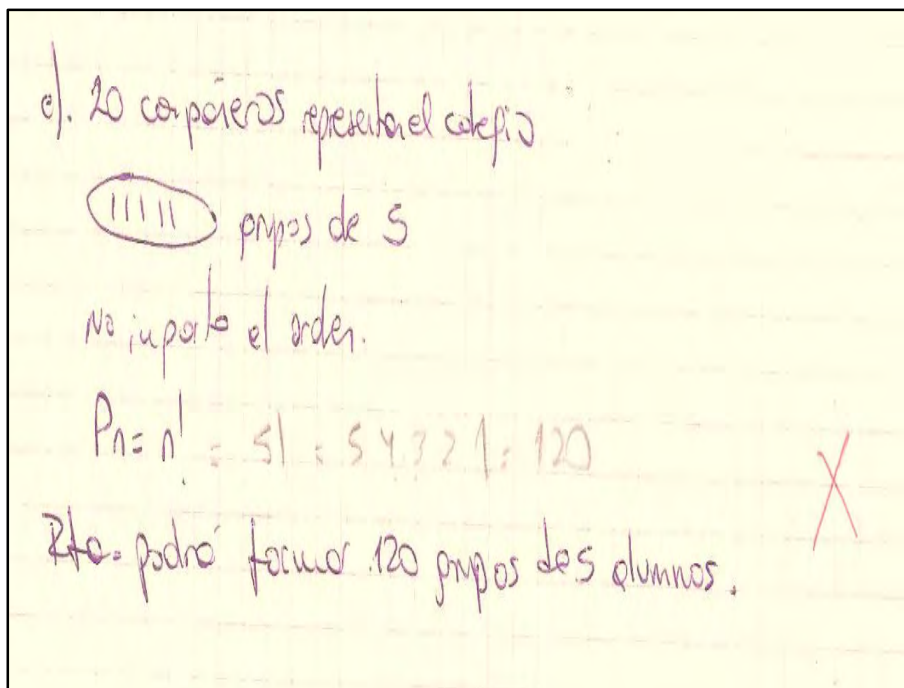 e). 20 compañeros representan el colegio
grupos de 5
No importa el orden.
Pn = n! = 5! = 5 4 3 2 1 = 120
Rta = podrá formar 120 grupos de 5 alumnos.